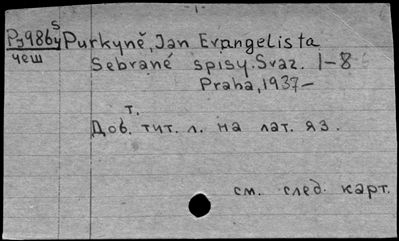 Pz986y s Purkyně, Jan Evangelista
чеш Sebrané spisy. Svaz. 1-8
Praha, 1937-
т.
Доб. тит. л. на лат. яз.
см. след. карт.